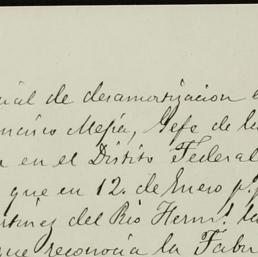 cial de desamortizacion e
ncisco Mejía, Gefe de la
en el Distito Federal
que en 12. de Enero p.
rtinez del Rio Herm.
que reconocia la Fabr